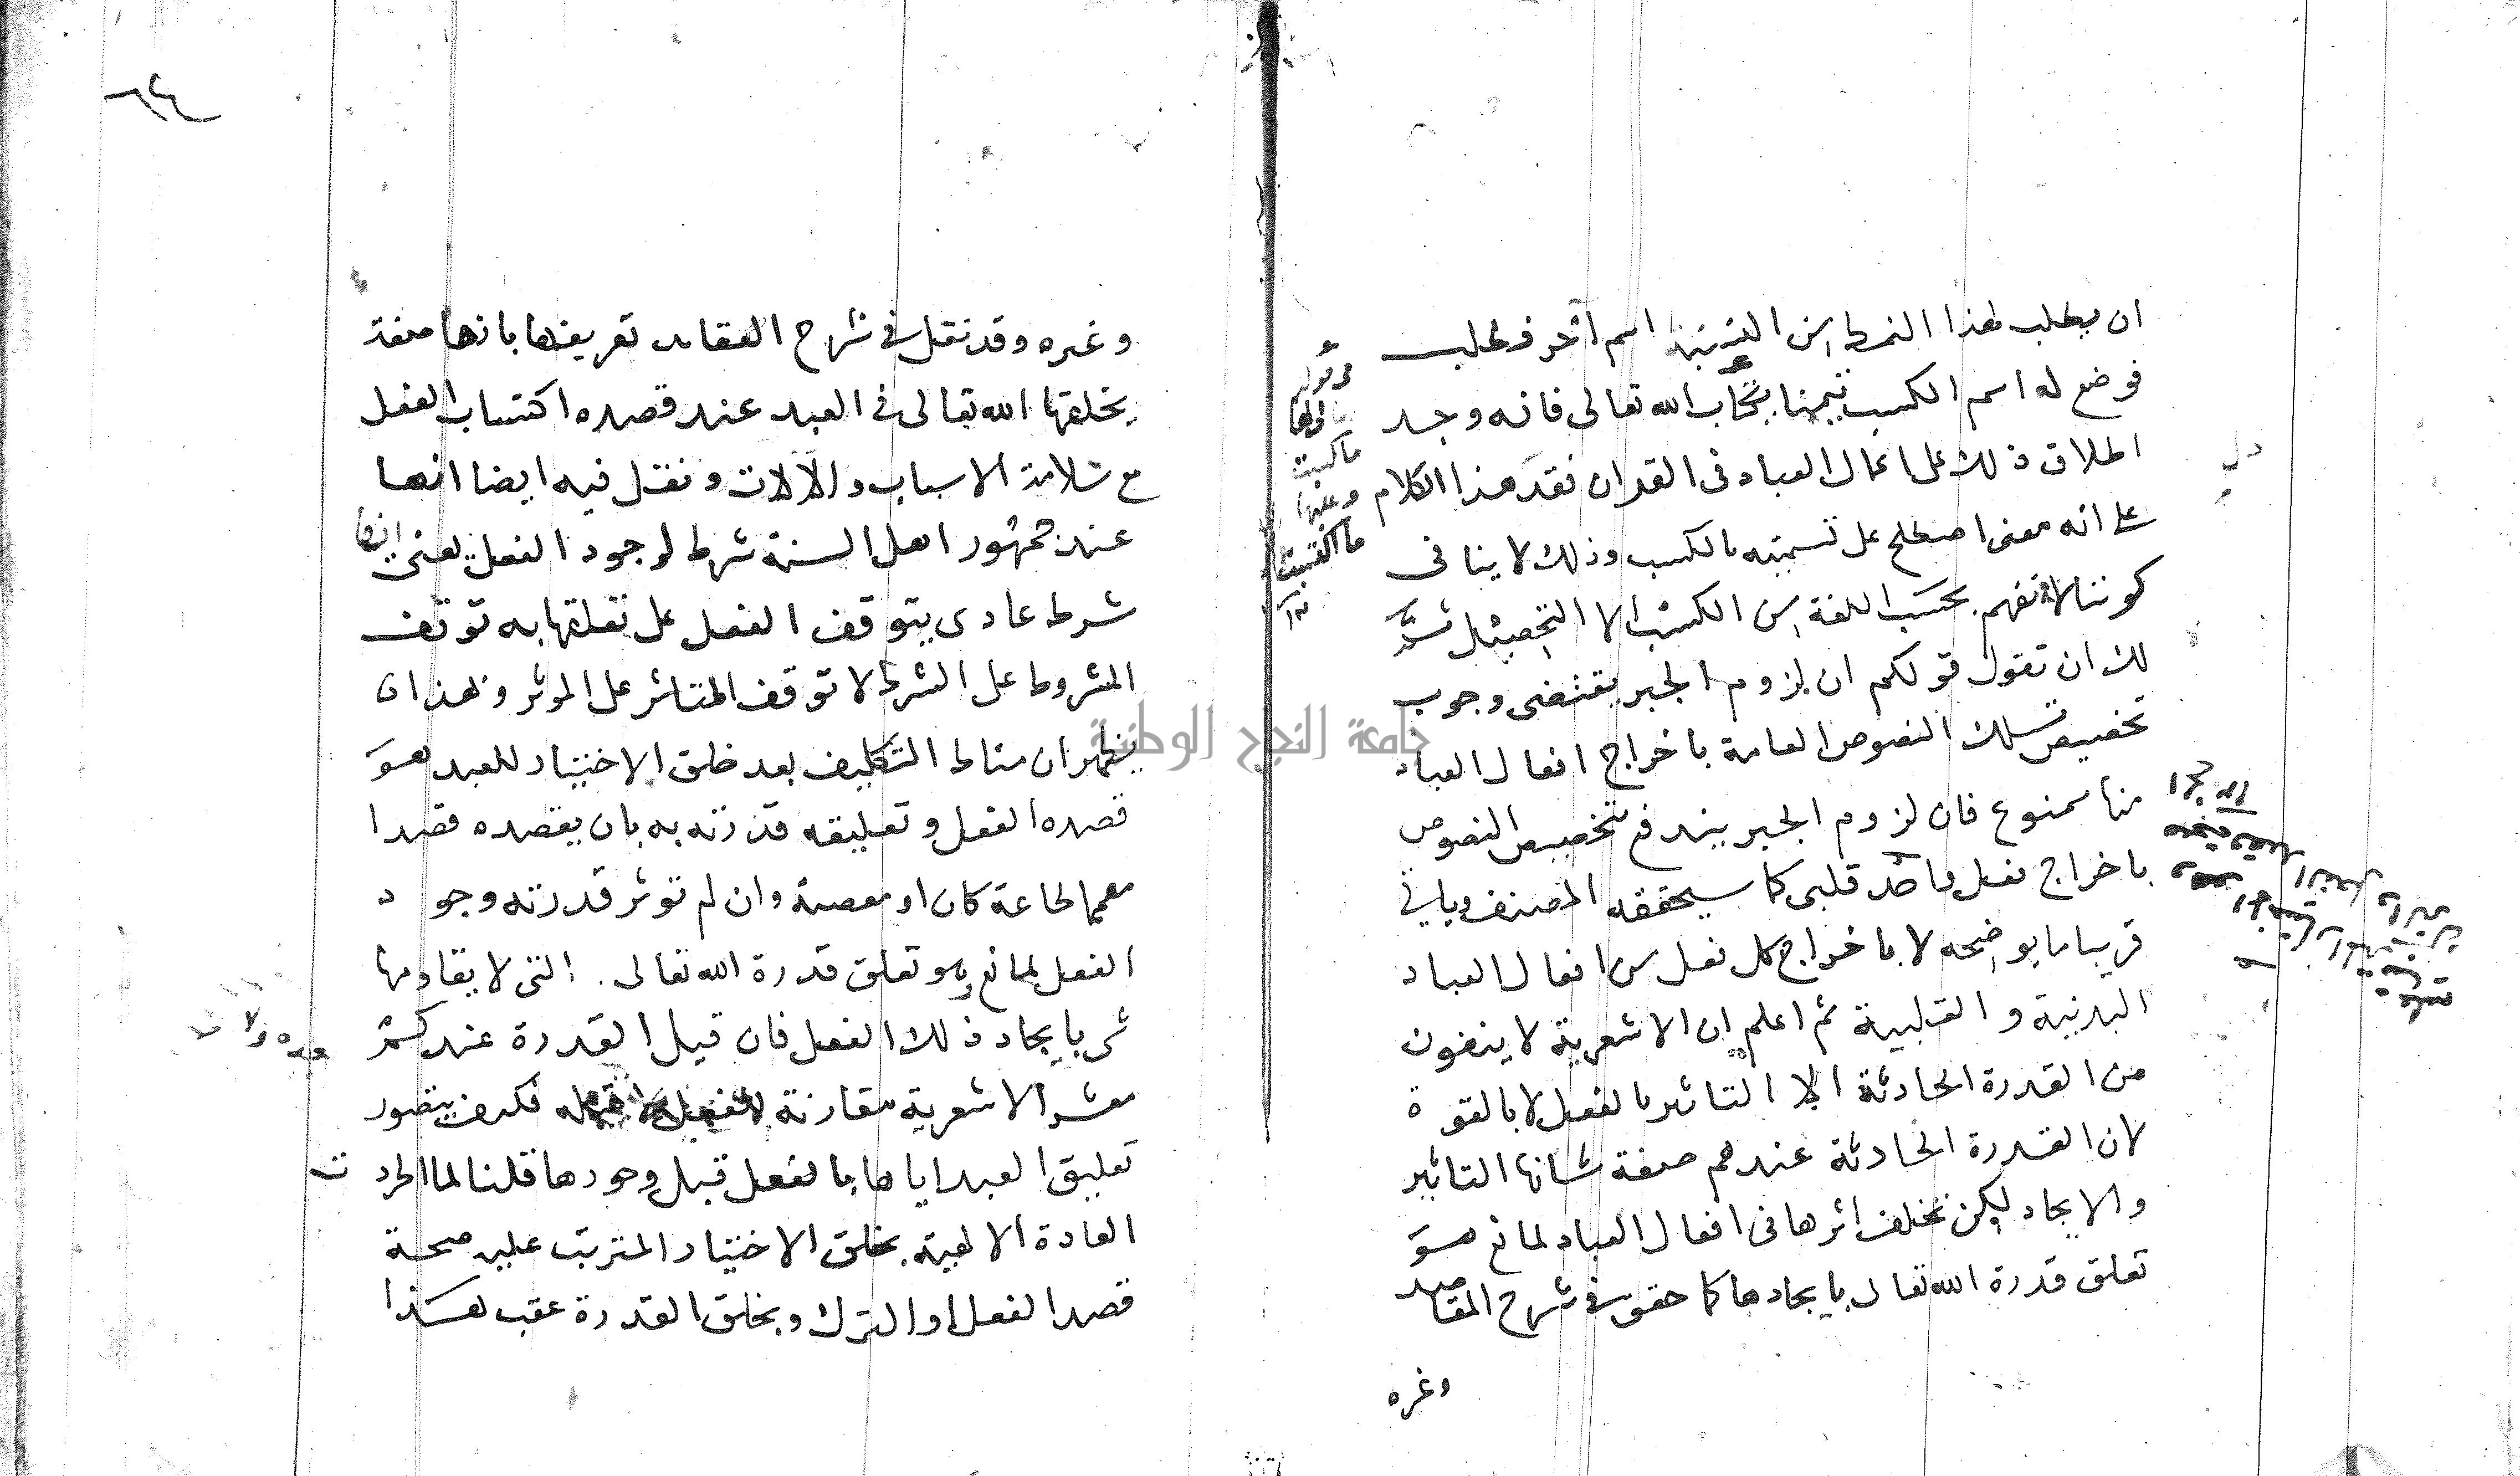 ان يطلب لهذا النمط من النسبة اسم آخر فطلب
فوضع له اسم الكسب تيمنا بكتاب الله تعالى فانه وجد
اطلاق ذلك على اعمال العباد فى القران فقد هذا الكلام
على انه معنى اصطلح على تسميته بالكسب وذلك لا ينافى
كوننا لا نفهم بحسب اللغة من الكسب الا التحصيل ثم
لك ان تقول قولكم ان لزوم الجبر يقتضى وجوب
تخصيص تلك النصوص العامة باخراج افعال العباد
منها ممنوع فان لزوم الجبر يندفع بتخصيص النصوص
باخراج فعل واحد قلبى كما سيحققه المصنف وياتى
قريبا ما يوضحه لا باخراج كل فعل من افعال العباد
البدنية والقلبية ثم اعلم ان الاشعرية لا ينفون
من القدرة الحادثة الا التاثير بالفعل لا بالقوة
لان القدرة الحادثة عندهم صفة شانها التاثير
والايجاد لكن تخلف اثرها فى افعال العباد لمانع هو
تعلق قدرة الله تعالى بايجادها كما حقق فى شرح المقاصد
وغره
فى قوله
لها
ما كسبت
وعليها
ما اكتسبت
وغيره وقد نقل فى شرح العقائد تعريفها بانها صفة
يخلقها الله تعالى فى العبد عند قصده اكتساب الفعل
مع سلامة الاسباب والآلات ونقل فيه ايضا انها
عند جمهور اهل السنة شرط لوجود الفعل يعنى انها
شرط عادى يتوقف الفعل على تعلقها به توقف
المشروط على الشرط لا توقف المتاثر على الموثر وبهذا
يظهر ان مناط التكليف بعد خلق الاختيار للعبد هو
قصده الفعل وتعليقه قدرته به بان يقصده قصدا
مصمما طاعة كان او معصية وان لم توثر قدرته وجود
الفعل لمانع هو تعلق قدرة الله تعالى التى لا يقاومها
شى بايجاد ذلك الفعل فان قيل القدرة عندكم
معشر الاشعرية مقارنة للفعل لا قبله فكيف يتصور
تعليق العبد اياها بالفعل قبل وجودها قلنا لما اطردت
العادة الالهية بخلق الاختيار المترتب عليه صحة
قصد الفعل او الترك وبخلق القدرة عقب هذا
جامعة النجاح الوطنية